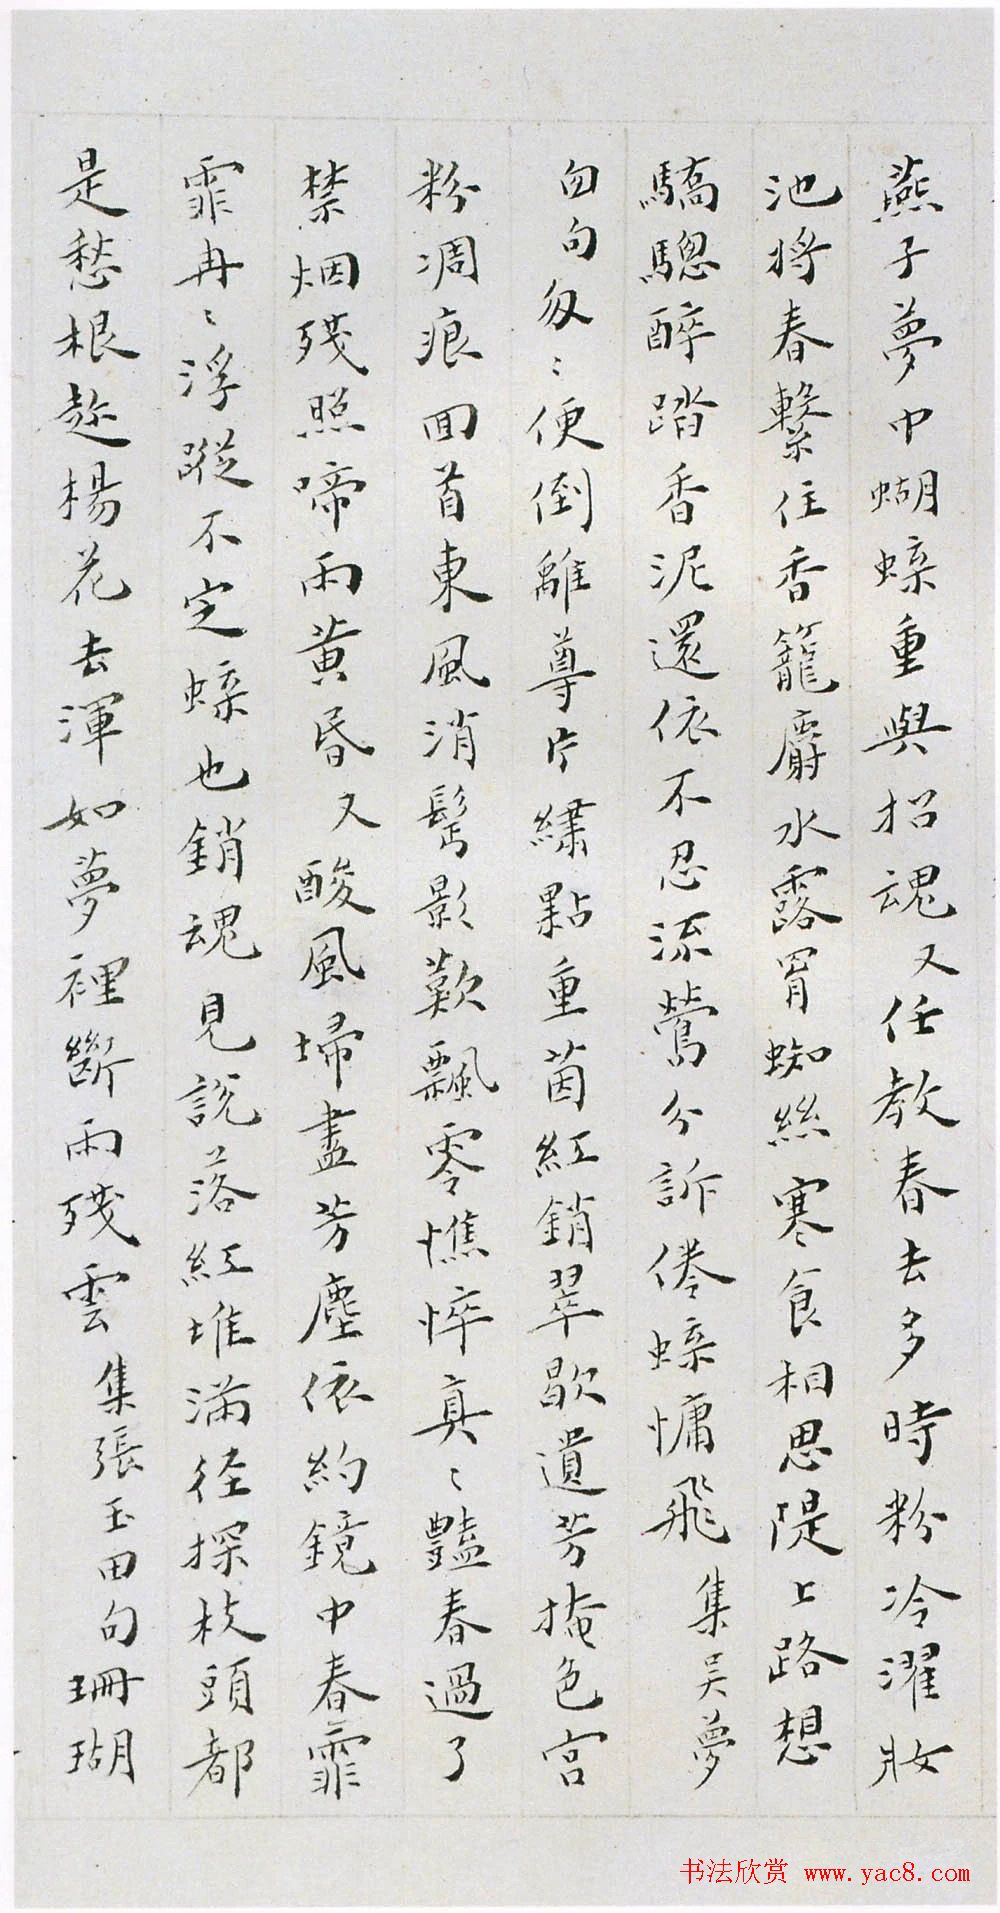 燕子夢中蝴蜨重與招魂又任教春去多時粉冷濯妝
池將春繫住香籠麝水露罥蜘絲寒食相思隄上路想
驕驄醉踏香泥還依不忍流鶯分訴倦蜨慵飛集吴夢
匆句匆〻便倒離尊片繡點重茵紅銷翠歇遺芳掩色宫
粉凋痕回首東風消鬢影歎飄零憔悴真〻豔春過了
禁烟殘照啼雨黄昏又酸風埽盡芳塵依約鏡中春霏
霏冉〻浮蹤不定蜨也銷魂見説落紅堆滿徑探枝頭都
是愁根趁楊花去渾如夢裡斷雨殘雲集張玉田句珊瑚
书法欣赏 www.yac8.com